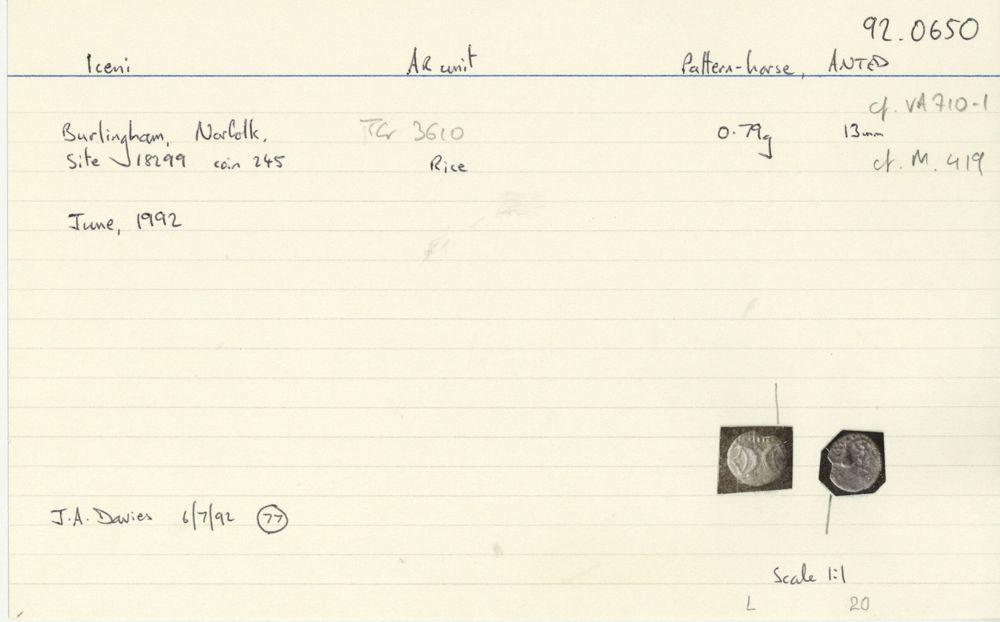 92.0650
Iceni AR unit Pattern-horse, ANTED
cf. VA 710-1
Burlingham, Norfolk. TCr 3610 0.79g 13mm
Site 18299 coin 245 Rice cf. M. 419
June, 1992
J.A. Davies 6/7/92 77
Scale 1:1
L 20